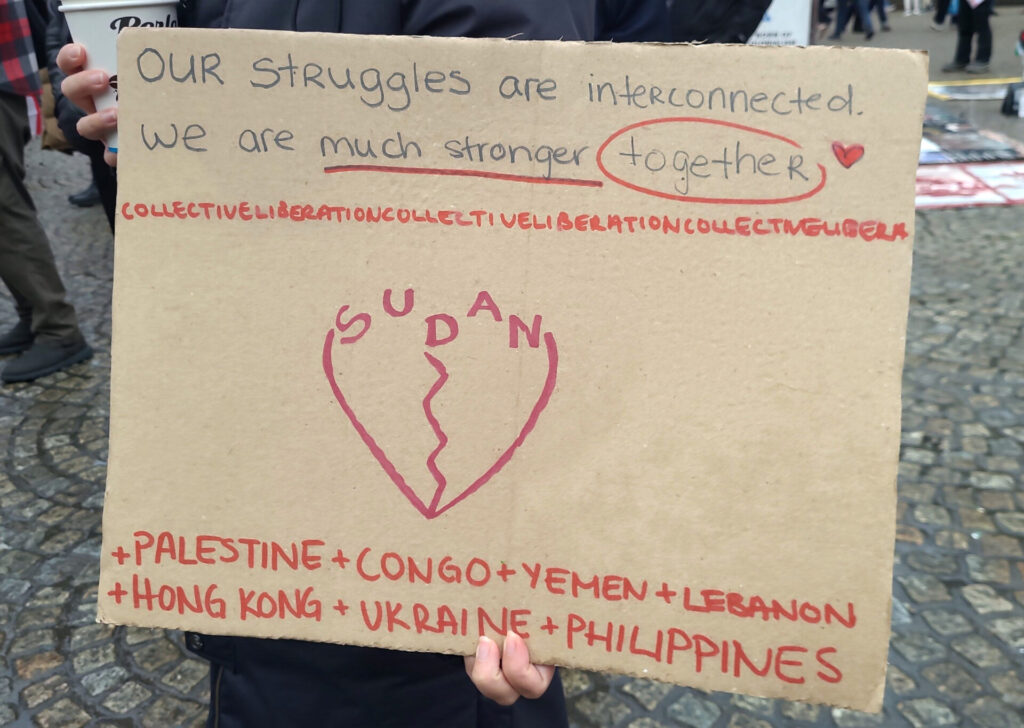 OUR StRuggles are interconnected.
we are much stronger togetheR
COLLECTIVELIBERATIONCOLLECTIVELIBERATIONCOLLECTIVELIBERA
SUDAN
+PALESTINE + CONGO + YEMEN + LEBANON
+HONG KONG + UKRAINE + PHILIPPINES